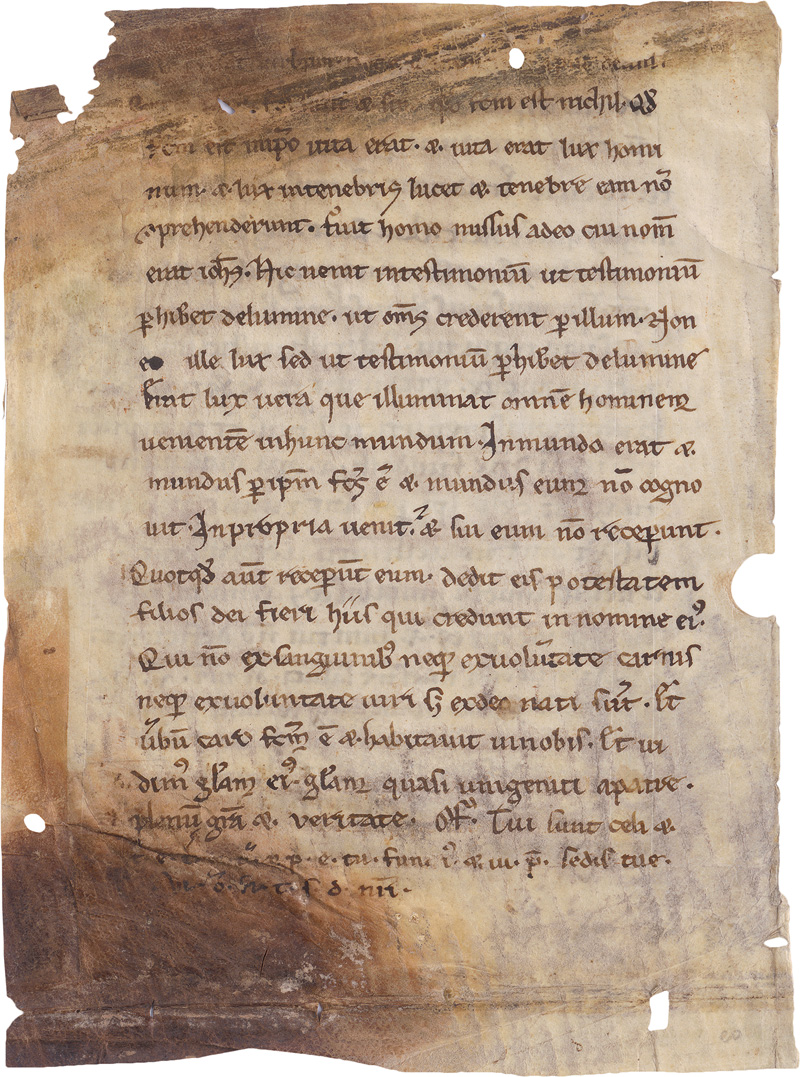 factum est nichil. qđ
est in ip̄o uita erat. & uita erat lux homi
num. & lux intenebris lucet & tenebre eam nō
ꝯprehenderunt. fuit homo missus adeo cui nom̄
erat ioh̄s. Hic uenit intestimoniū ut testimoniū
ꝑhibet delumine. ut om̄s crederent ꝑ illum. Non
ille lux sed ut testimoniū ꝑhibet delumine
Erat lux uera que illuminat omnē hominem
uenientē inhunc mundum. Inmundo erat &
mundus ꝑ ip̄m fc̄s ē & mundus eum nō cogno
uit. Inpropria uenit. & sui eum nō receperunt.
Quotqđ aūt receper̄t eum. dedit eis potestatem
filios dei fieri hiis qui credunt in nomine ei᷒.
Qui nō exsanguinib᷒ neqꝫ exuolūtate carnis
neqꝫ exuoluntate uiri sꝫ exdeo nati sūt. Et
ūbū caro fc̄m ē & habitauit innobis. Et ui
dim᷒ gl̄am ei᷒. gl̄am quasi unigeniti apatre.
plenū grā &. veritate. Of̄. Tui sunt celi &.
t. e. t. o. r. & p. e. tu. fun. i. & iu. p̄. sedis tue.